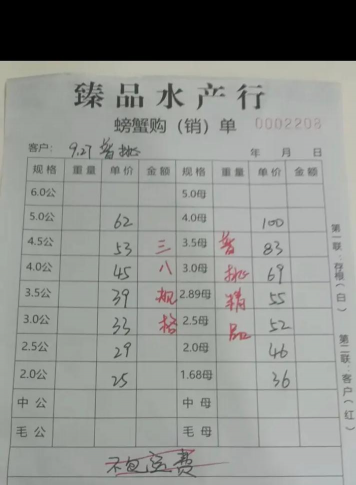 臻品水产行
螃蟹购（销）单 0002208
客户： 9.27 普挑 年 月 日
规格 重量 单价 金额 规格 重量 单价 金额
6.0公 5.0母
5.0公 62 4.0母 100
4.5公 53 三 3.5母 普 83
4.0公 45 八 3.0母 挑 69
3.5公 39 规 2.89母 精 55
3.0公 33 格 2.5母 品 52
2.5公 29 2.0母 46
2.0公 25 1.68母 36
中公 中母
毛公 毛母
不包运费
第一联：存根（白）
第二联：客户（红）